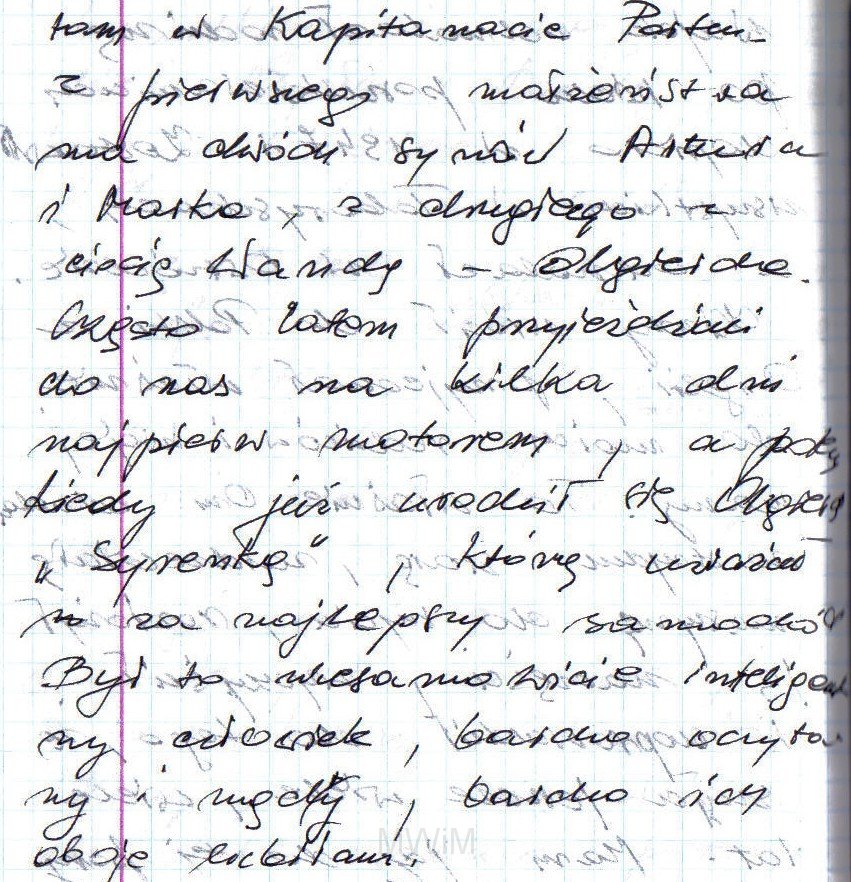 tam w Kapitanacie Portu
z pierwszego małżeństwa
ma dwóch synów Artura
i Marka, z drugiego z
ciocią Wandą – Olgierda.
Często latem przyjeżdżali
do nas na kilka dni
najpierw motorem, a
kiedy już urodził się Olgierd
„Syrenką", którą uważał
za najlepszy samochód
Był to niesamowicie inteligent
ny człowiek, bardzo oczyta
ny i mądry, bardzo ich
oboje lubiłam.
MWiM